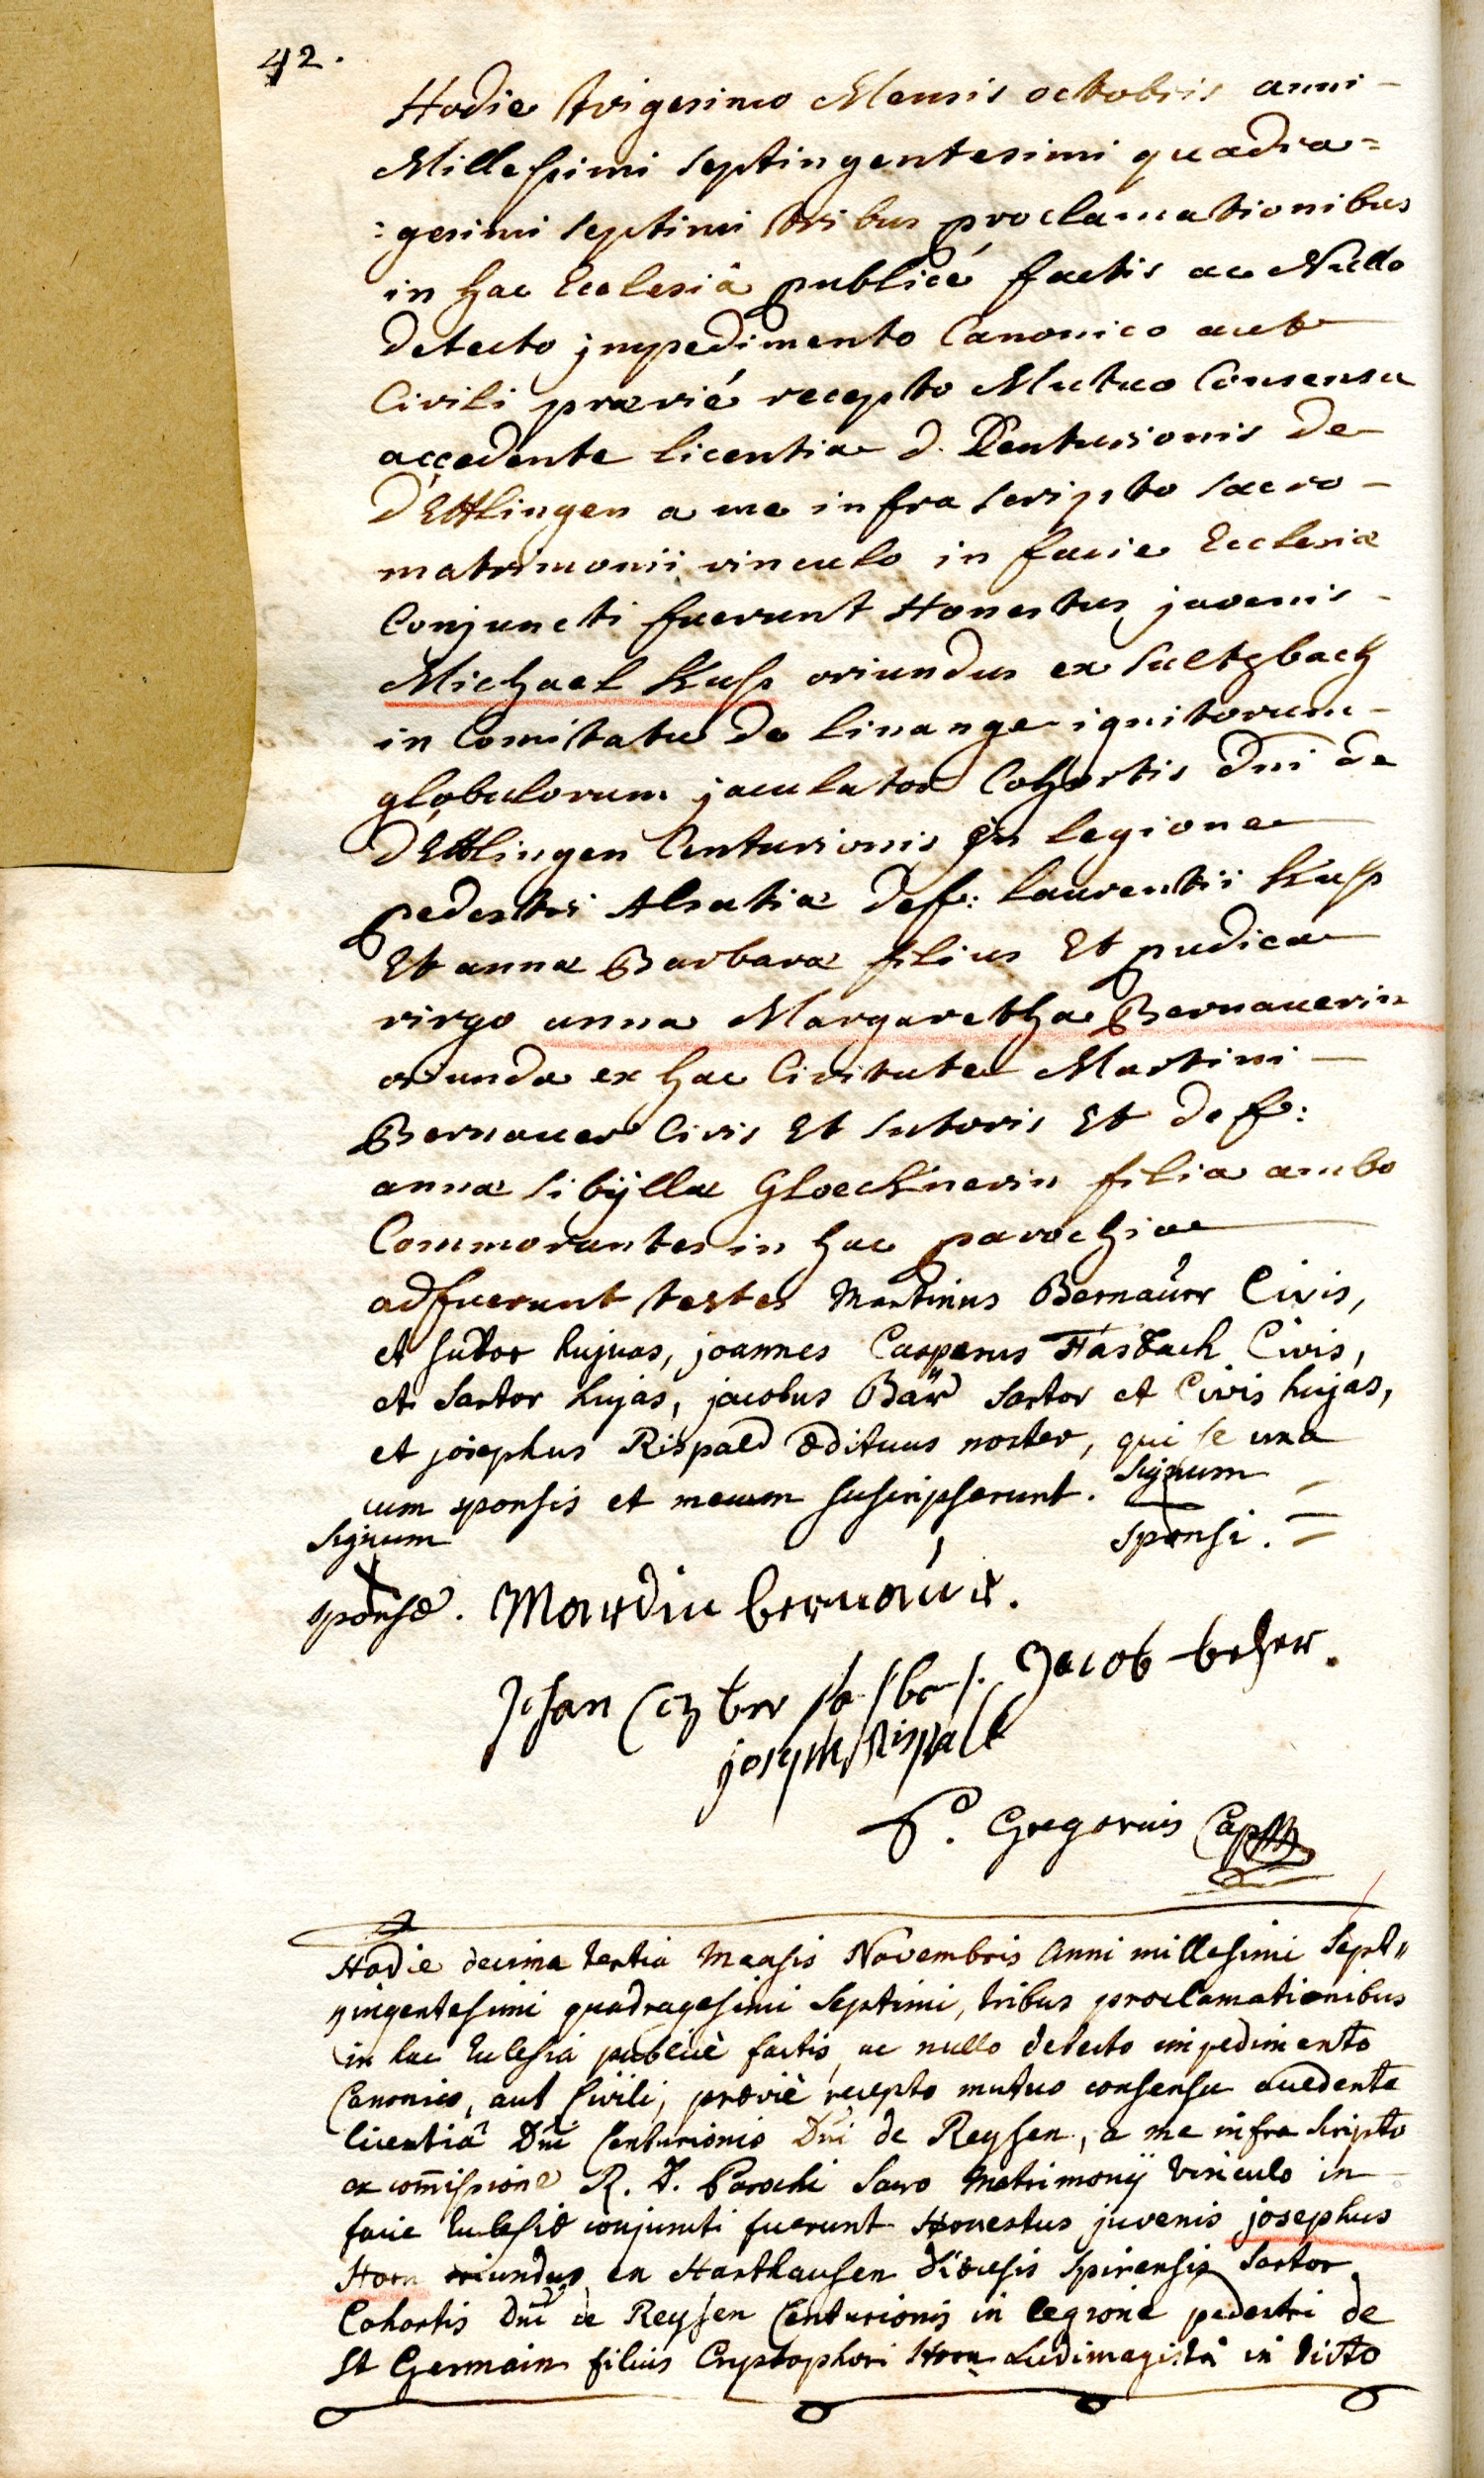 42.
Hodie trigesimo Mensis octobris anni -
Millesimi septingentesimi quadra=
:gesimi septimi tribus proclamationibus
in hac Ecclesiâ publicé factis ac Nullo
detecto jmpedimento Canonico aut
Civili prævié recepto Mutuo Consensu
accedente licentia d. Centurionis de
d'Ettlingen a me infra scripto sacro -
matrimonii vinculo in facie Ecclesiæ
Conjuncti fuerunt Honestus juvenis -
Michael Kuss oriundus ex Sultzbach
in Comitatu de linange ignitorum -
globulorum jaculator Cohortis dni de
d'Ettlingen Centurionis in legione
pedestri Alsatiæ def: laurentii Kuss
Et annæ Barbaræ filius Et pudica
virgo anna Margaretha Bernauerin
oriunda ex hac Civitate Martini -
Bernauer Civis Et sutoris Et def:
annæ Sibÿllæ Gloecknerin filia ambo
Commorantes in hac parochia
adfuerunt testes Martinus Bernaúer Civis,
et sutor hujuas, joannes Casparus Hasbach Civis,
et Sartor hujas, jacobus Bär sartor et Civis hujas,
et josephus Rispald ædituus noster, qui se una
cum sponsis et mecum suscripserunt. Signum
Signum sponsi.
sponsæ. Mardin bernaúer.
Johan Jacob beher.
joseph Rispalt
P. Gregorius Cap
Hodie decima tertia Mensis Novembris Anni millesimi Sept"
ingentesimi quadragesimi Septimi, tribus proclamationibus
in hac Ecclesiá publicè factis, ac nullo detecto impedimento
Canonico, aut Civili, præviè recepto mutuo consensu accedente
licentiâ Dni Centurionis Dni de Reysen, a me infra scripto
ex com̄issione R. D. Parochi Sacro Matrimonÿ vinculo in
facie Ecclesiæ conjuncti fuerunt Honestus juvenis josephus
Horn oriundus ex Harthausen diœcesis Spirensis Sartor
Cohortis Dni de Reysen Centurionis in legione pedestri de
St Germain filius Cryptophori Horn Ludimagistri in dicto